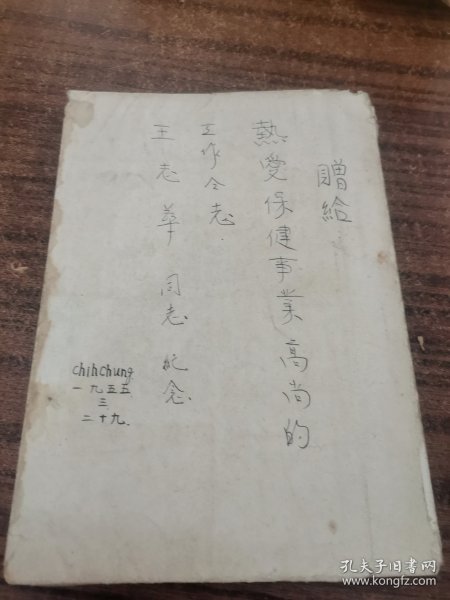 贈給
熱愛保健事業高尚的
工作仝志
王志華同志紀念
chihchung
一九五五
三
二十九.
孔夫子旧书网
www.kongfz.com